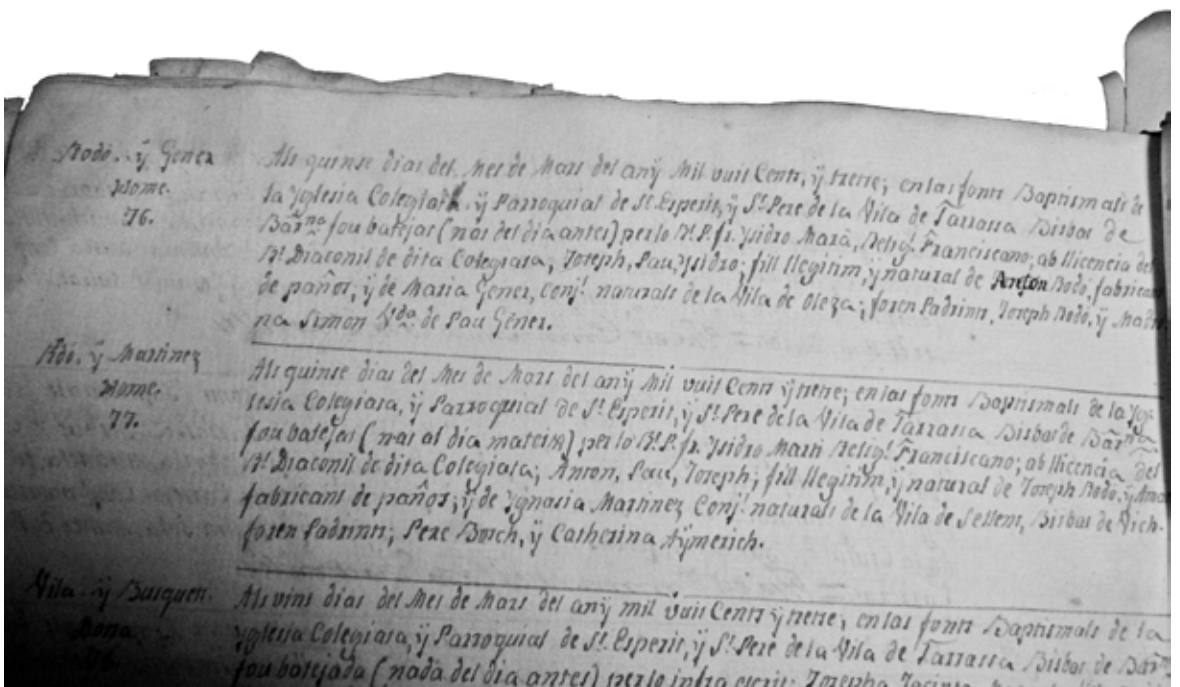 Rodó. ÿ Gener
Home.
76.
Als quinse dias del Mes de Mars del anÿ Mil vuit Cents, ÿ tretse; en las fonts Baptismals de
la Yglesia Colegiata, ÿ Parroquial de St. Esperit, ÿ St. Pere de la Vila de Tarrassa Bisbat de
Barna. fou batejat (nat del dia antes) per lo R. P. fr. Ysidro Marà, Religs. Franciscano; ab llicencia del
Rt. Diaconil de dita Colegiata; Joseph, Pau, Ysidro; fill llegitim, ÿ natural de Anton Rodó, fabricant
de paños, ÿ de Maria Gener, Conjs. naturals de la Vila de Oleza; foren Padrins, Joseph Rodó, ÿ
na Simon Vda. de Pau Gener.
Rdó. ÿ Martinez
Home.
77.
Als quinse dias del Mes de Mars del anÿ Mil vuit Cents ÿ tretse; en las fonts Baptismals de la Yg-
lesia Colegiata, ÿ Parroquial de St. Esperit, ÿ St. Pere de la Vila de Tarrassa Bisbat de Barna.
fou batejat (nat al dia mateix) per lo R. P. fr. Ysidro Marà Religs. Franciscano; ab llicencia del
Rt. Diaconil de dita Colegiata; Anton, Pau, Joseph; fill llegitim, ÿ natural de Joseph Rodó, ÿ
fabricant de paños; ÿ de Ygnasia Martinez Conjs. naturals de la Vila de Sellent, Bisbat de Vich-
foren Padrins; Pere Bosch, ÿ Catherina Aÿmerich.
Vila. ÿ Busquets.
Dona
Als vint dias del Mes de Mars del anÿ mil vuit Cents ÿ tretse, en las fonts Baptismals de la
Yglesia Colegiata, ÿ Parroquial de St. Esperit, ÿ St. Pere de la Vila de Tarrassa Bisbat de Barna.
fou batejada (nada del dia antes) per lo infra escrit; Josepha Jacinta